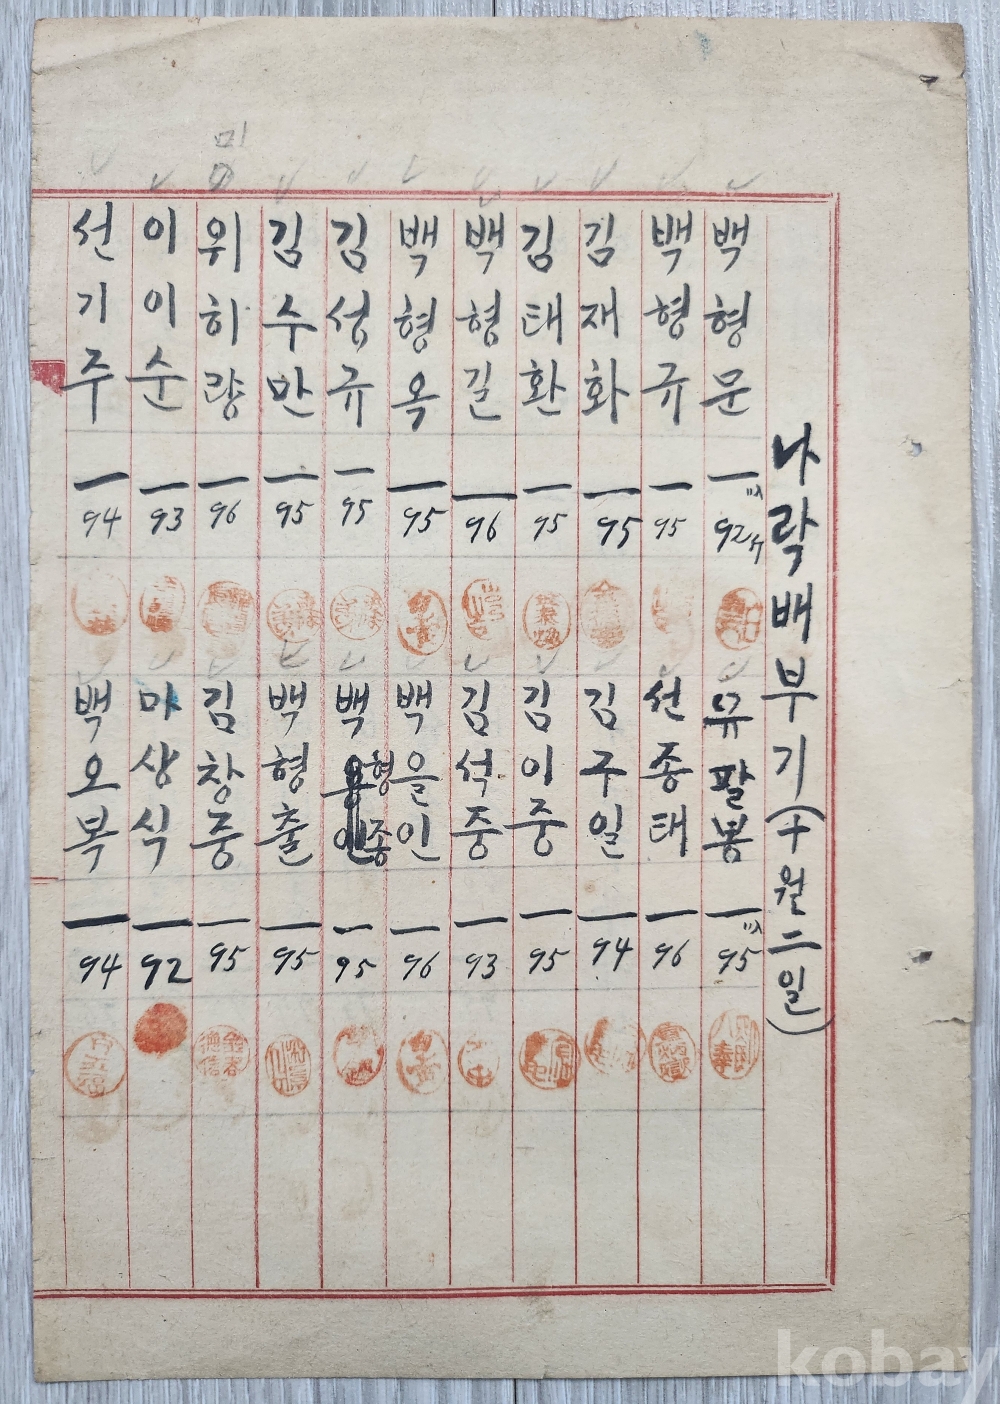 나락배부기(十월二일)
백형문 一 92
백형규 一 95
김재화 一 95
김태환 一 95
백형길 一 96
백형옥 一 95
김성규 一 95
김수만 一 95
미
위히량 一 96
이이순 一 93
선기주 一 94
유팔봉 一 95
선종태 一 96
김구일 一 94
김이중 一 95
김석중 一 93
백을인 一 96
백형종 一 95
백형출 一 95
김창중 一 95
마상식 一 92
백오복 一 94
kobay